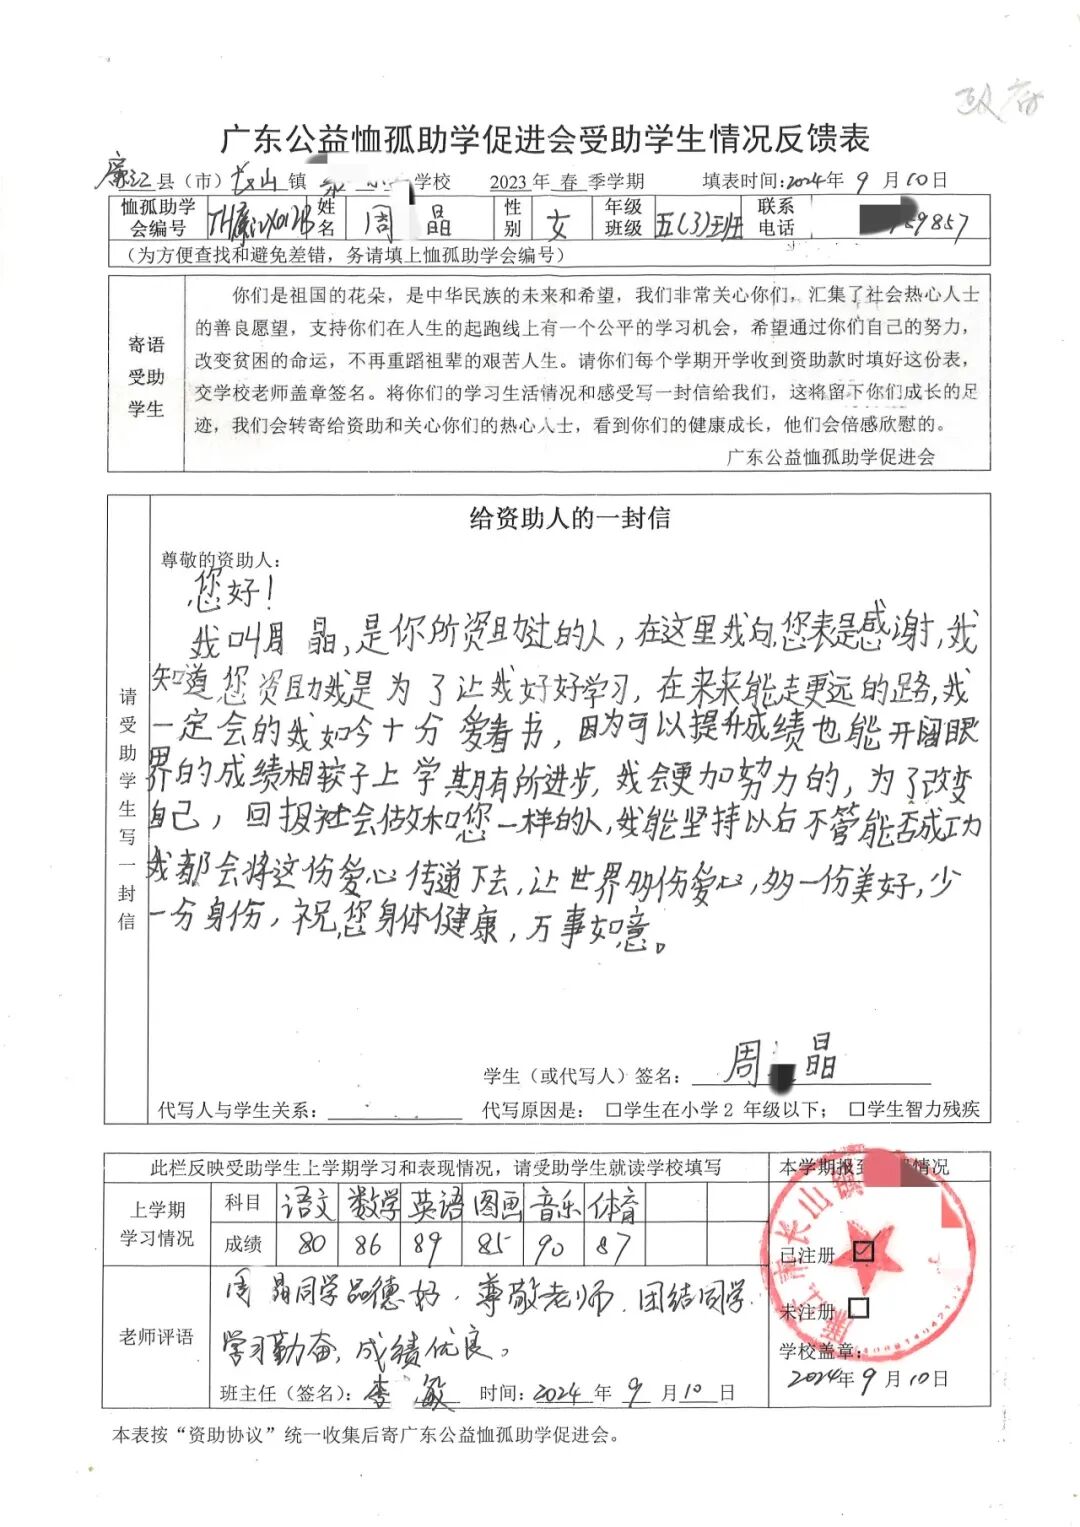 政府
广东公益恤孤助学促进会受助学生情况反馈表
廉江县（市）长山镇 学校 2023年 春 季学期 填表时间：2024年9月10日
恤孤助学会编号 姓名 周 晶 性别 女 年级班级 五(3)班 联系电话 59857
（为方便查找和避免差错，务请填上恤孤助学会编号）
寄语受助学生
你们是祖国的花朵，是中华民族的未来和希望，我们非常关心你们，汇集了社会热心人士
的善良愿望，支持你们在人生的起跑线上有一个公平的学习机会，希望通过你们自己的努力，
改变贫困的命运，不再重蹈祖辈的艰苦人生。请你们每个学期开学收到资助款时填好这份表，
交学校老师盖章签名。将你们的学习生活情况和感受写一封信给我们，这将留下你们成长的足
迹，我们会转寄给资助和关心你们的热心人士，看到你们的健康成长，他们会倍感欣慰的。
广东公益恤孤助学促进会
请受助学生写一封信
给资助人的一封信
尊敬的资助人：
您好！
我叫周 晶，是你所资助过的人，在这里我向您表是感谢，我
知道您资助我是为了让我好好学习，在来来能走更远的路，我
一定会的我如今十分爱看书，因为可以提升成绩也能开阔眼
界的成绩相较于上学期有所进步，我会更加努力的，为了改变
自己，回报社会做和您一样的人，我能坚持以后不管能否成功
我都会将这份爱心传递下去，让世界多份爱心，多一份美好，少
一分身份，祝您身体健康，万事如意。
学生（或代写人）签名：周 晶
代写人与学生关系： 代写原因是：□学生在小学2 年级以下；□学生智力残疾
此栏反映受助学生上学期学习和表现情况，请受助学生就读学校填写 本学期报到 情况
上学期学习情况 科目 语文 数学 英语 图画 音乐 体育
成绩 80 86 89 85 90 87
已注册 ☑
未注册 □
学校盖章：
2024年9月10日
老师评语
周 晶同学品德好，尊敬老师，团结同学，
学习勤奋，成绩优良。
班主任（签名）：李 敏 时间：2024 年 9 月 10 日
廉江市长山镇
本表按“资助协议”统一收集后寄广东公益恤孤助学促进会。